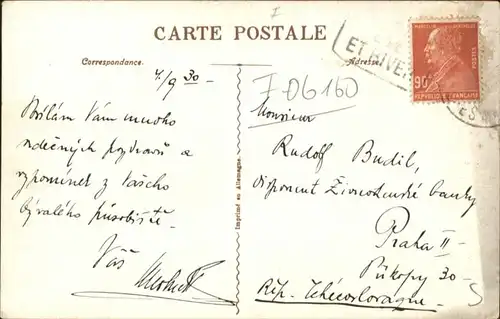 CARTE POSTALE
Correspondance.
Adresse.
ET RIVE
MARCELIN BERTHELOT
POSTES
90c
REPUBLIQUE FRANÇAISE
4/9 30
F 06160
Posílám Vám mnoho
srdečných pozdravů a
vzpomínek z Vašeho
bývalého působiště.
Váš
Imprimé en Allemagne.
Monsieur
Rudolf Budil,
disponent Živnostenské banky
Praha II
Příkopy 30
Rép. Tchécoslovaque.